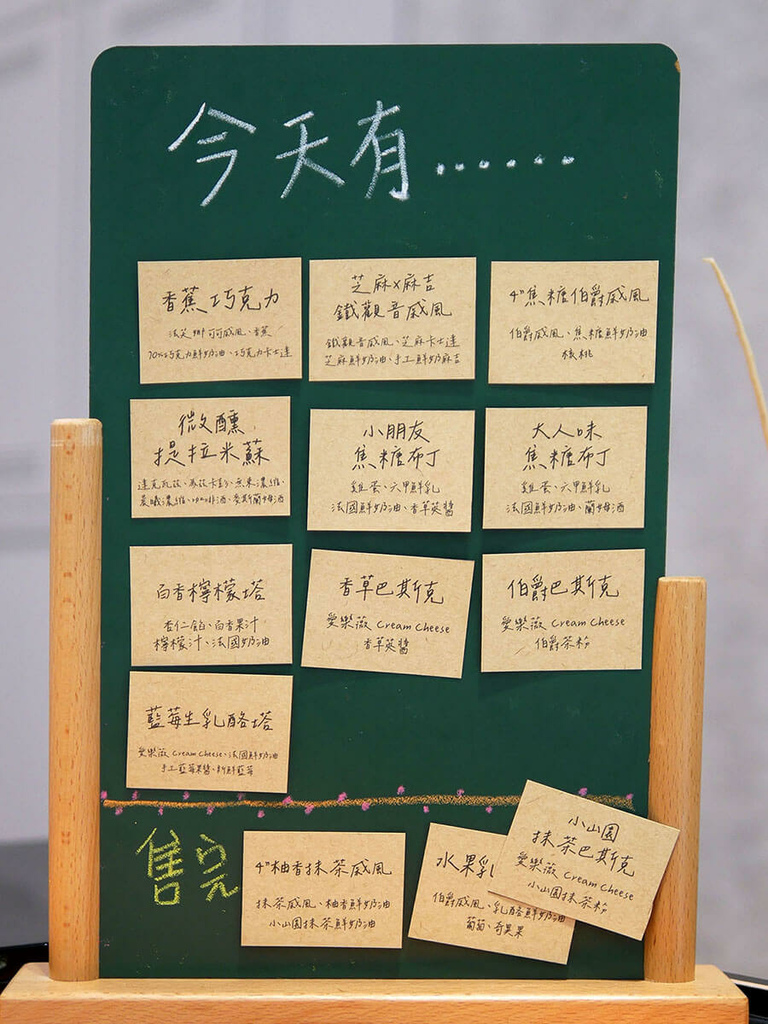 今天有......
香蕉巧克力
法芙娜可可戚風、香蕉
70%巧克力鮮奶油、巧克力卡士達
芝麻x麻吉
鐵觀音戚風
鐵觀音戚風、芝麻卡士達
芝麻鮮奶油、手工鮮奶麻吉
4"焦糖伯爵戚風
伯爵戚風、焦糖鮮奶油
核桃
微醺
提拉米蘇
達克瓦茲、馬茲卡彭
、咖啡酒、麥斯蘭姆酒
小朋友
焦糖布丁
雞蛋、六甲鮮乳
法國鮮奶油、香草莢醬
大人味
焦糖布丁
雞蛋、六甲鮮乳
法國鮮奶油、蘭姆酒
百香檸檬塔
杏仁粉、百香果汁
檸檬汁、法國奶油
香草巴斯克
愛樂薇 Cream Cheese
香草莢醬
伯爵巴斯克
愛樂薇 Cream Cheese
伯爵茶粉
藍莓生乳酪塔
愛樂薇 Cream Cheese、法國鮮奶油
手工藍莓果醬、新鮮藍莓
售完
4"柚香抹茶戚風
抹茶戚風、柚香鮮奶油
小山園抹茶鮮奶油
水果乳
伯爵戚風、乳酪鮮奶油
葡萄、奇異果
小山園
抹茶巴斯克
愛樂薇 Cream Cheese
小山園抹茶粉